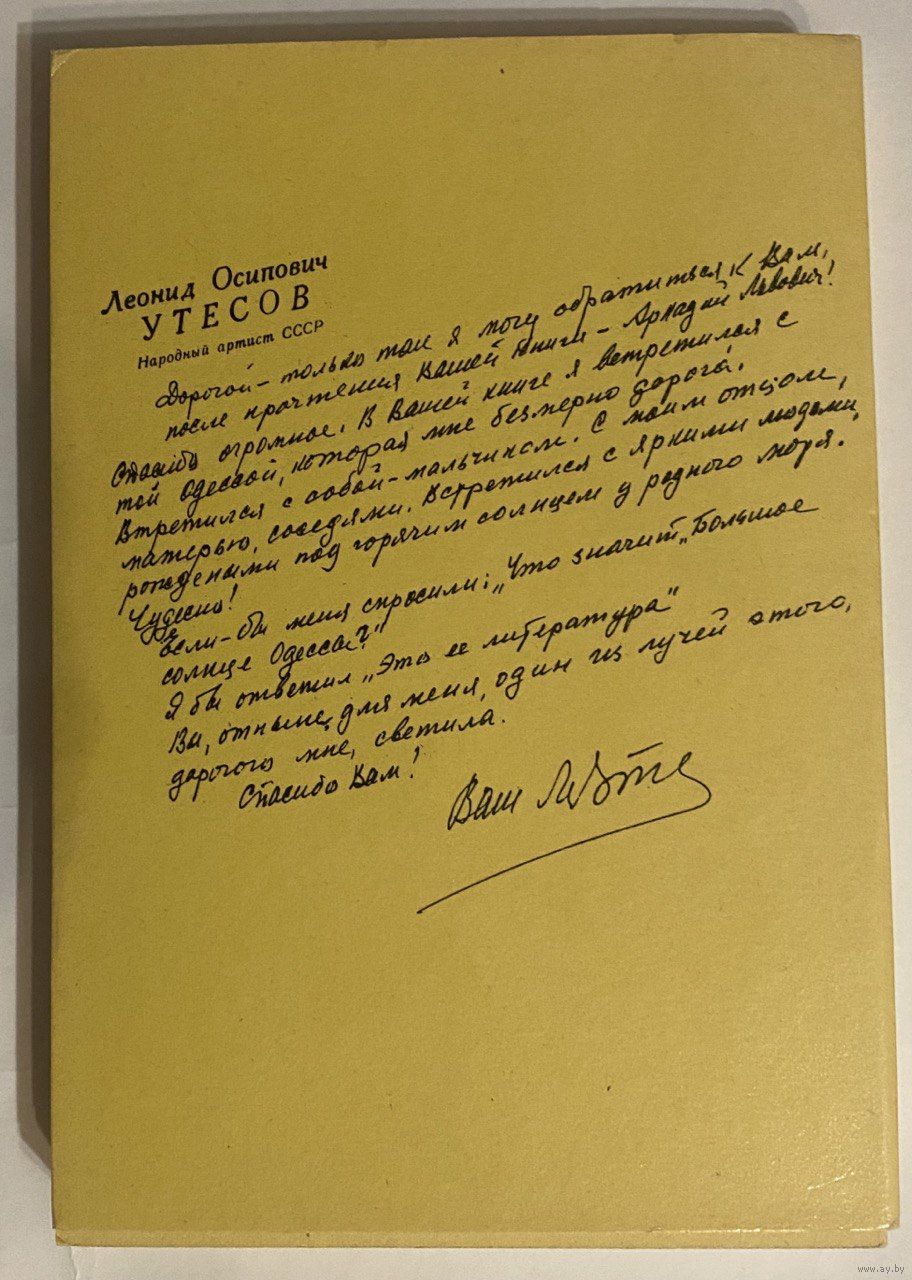 Леонид Осипович
УТЕСОВ
Народный артист СССР
Дорогой – только так я могу обратиться к Вам,
после прочтения Вашей книги – Аркадий Львович!
Спасибо огромное. В Вашей книге я встретился с
той Одессой, которая мне безмерно дорога.
Втретился с собой – мальчиком. С моим отцом,
матерью, соседями. Встретился с яркими людьми,
рождеными под горячим солнцем у родного моря.
Чудесно!
Если-бы меня спросили: „Что значит „Большое
солнце Одессы?"
Я бы ответил „Это ее литература"
Вы, отныне, для меня, один из лучей этого,
дорогого мне, светила.
Спасибо Вам!
Ваш
www.ay.by